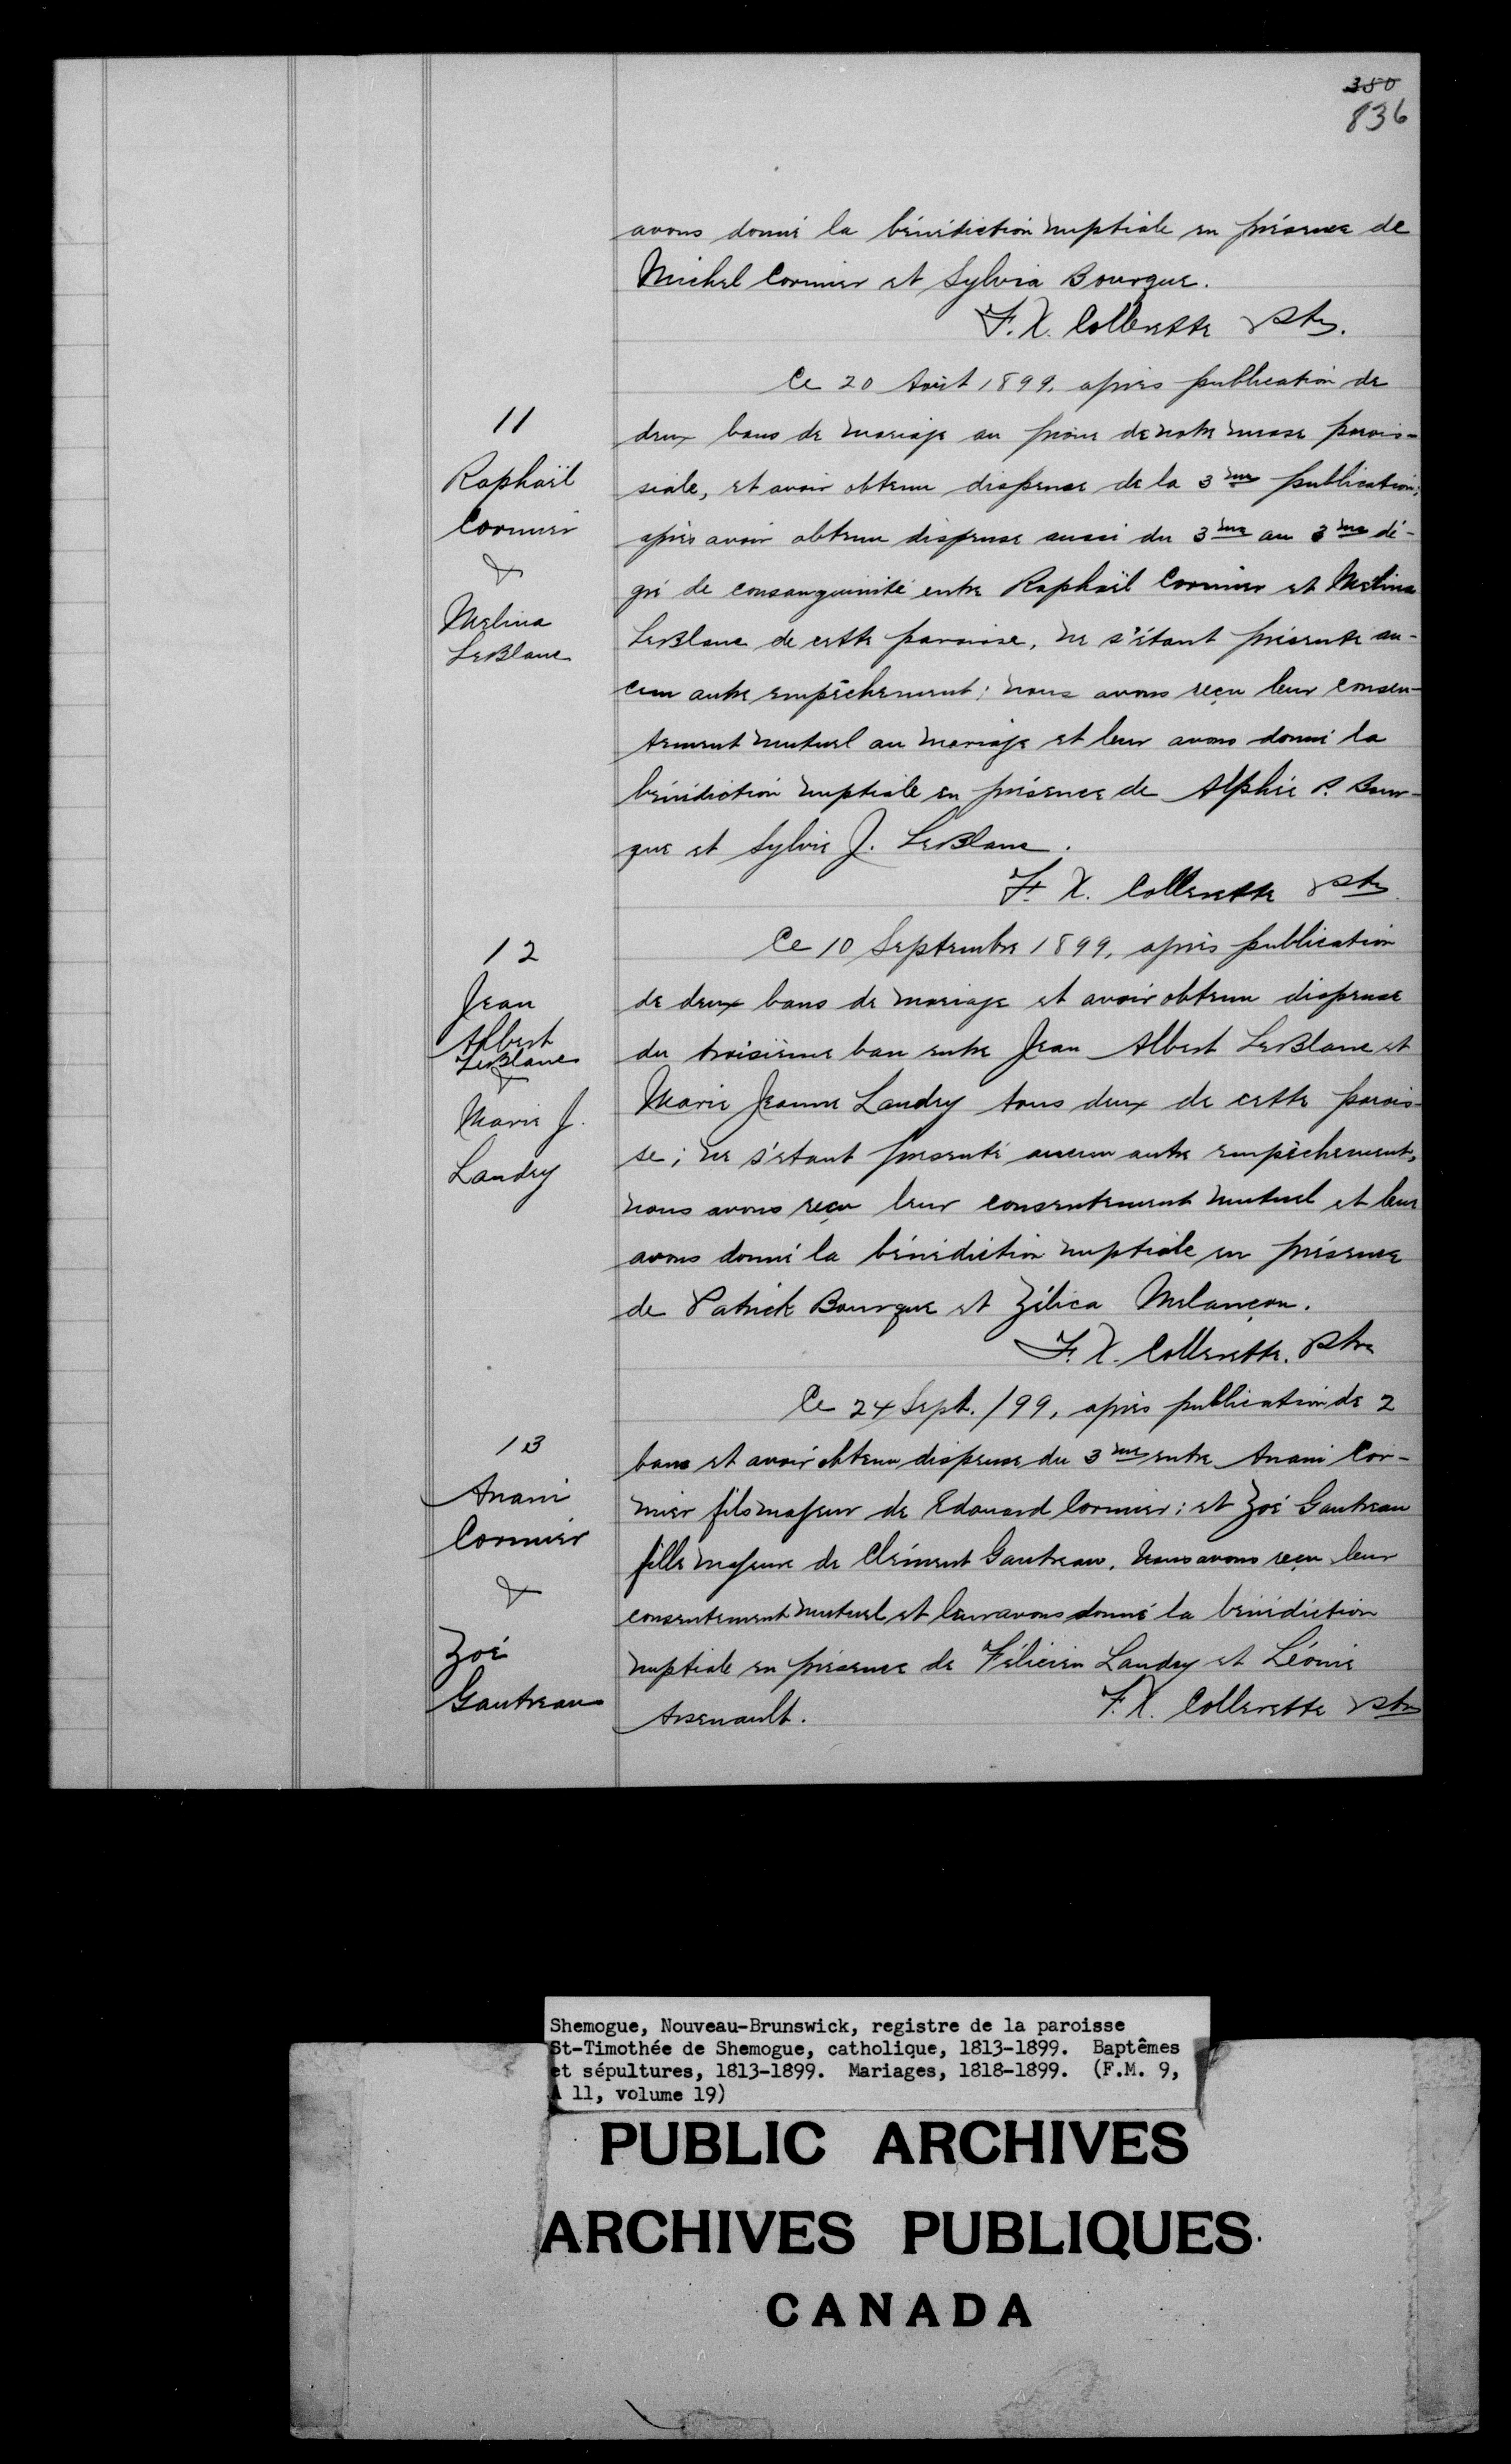 380
836
avons donné la bénédiction nuptiale en présence de
Michel Cormier et Sylvia Bourque.
F. X. Collerette Ptre.
Ce 20 Août 1899, après publication de
11
deux bans de mariage au prône de notre messe parois-
Raphaël
siale, et avoir obtenu dispense de la 3me publication;
Cormier
après avoir obtenu dispense aussi du 3me au 3me dé-
&
gré de consanguinité entre Raphaël Cormier et Melina
Melina
LeBlanc de cette paroisse, ne s'étant présenté au-
LeBlanc
cun autre empêchement; nous avons reçu leur consen-
tement mutuel au mariage et leur avons donné la
bénédiction nuptiale en présence de Alphée P. Bour-
que et Sylvie J. LeBlanc.
F. X. Collerette Ptre
Ce 10 Septembre 1899, après publication
12
Jean
de deux bans de mariage et avoir obtenu dispense
Albert
LeBlanc
du troisième ban entre Jean Albert LeBlanc et
&
Marie J.
Marie Jeanne Landry tous deux de cette parois-
Landry
se; ne s'étant présenté aucun autre empêchement,
nous avons reçu leur consentement mutuel et leur
avons donné la bénédiction nuptiale en présence
de Patrick Bourque et Zélica Melançon.
F. X. Collerette. Ptre
Ce 24 Sept. /99, après publication de 2
13
bans et avoir obtenu dispense du 3me entre Anani Cor-
Anani
mier fils majeur de Edouard Cormier; et Zoé Gautreau
Cormier
fille majeure de Clément Gautreau. Nous avons reçu leur
&
consentement mutuel et leur avons donné la bénédiction
Zoé
nuptiale en présence de Félicien Landry et Léonie
Gautreau
Arsenault. F. X. Collerette Ptre
Shemogue, Nouveau-Brunswick, registre de la paroisse
St-Timothée de Shemogue, catholique, 1813-1899. Baptêmes
et sépultures, 1813-1899. Mariages, 1818-1899. (F.M. 9,
A 11, volume 19)
PUBLIC ARCHIVES
ARCHIVES PUBLIQUES
CANADA